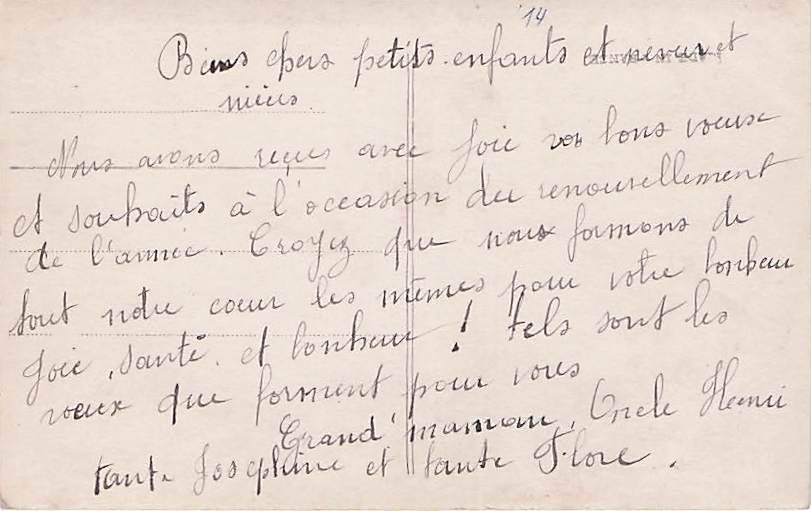 14
Biens chers petits-enfants et neveux et
nièces.
Nous avons reçus avec joie vos bons voeux
et souhaits à l'occasion du renouvellement
de l'année. Croyez que nous formons de
tout notre coeur les mêmes pour votre bonheur
joie, santé, et bonheur ! tels sont les
voeux que forment pour vous
Grand'maman, Oncle Henri
tante Josephine et tante Flore.